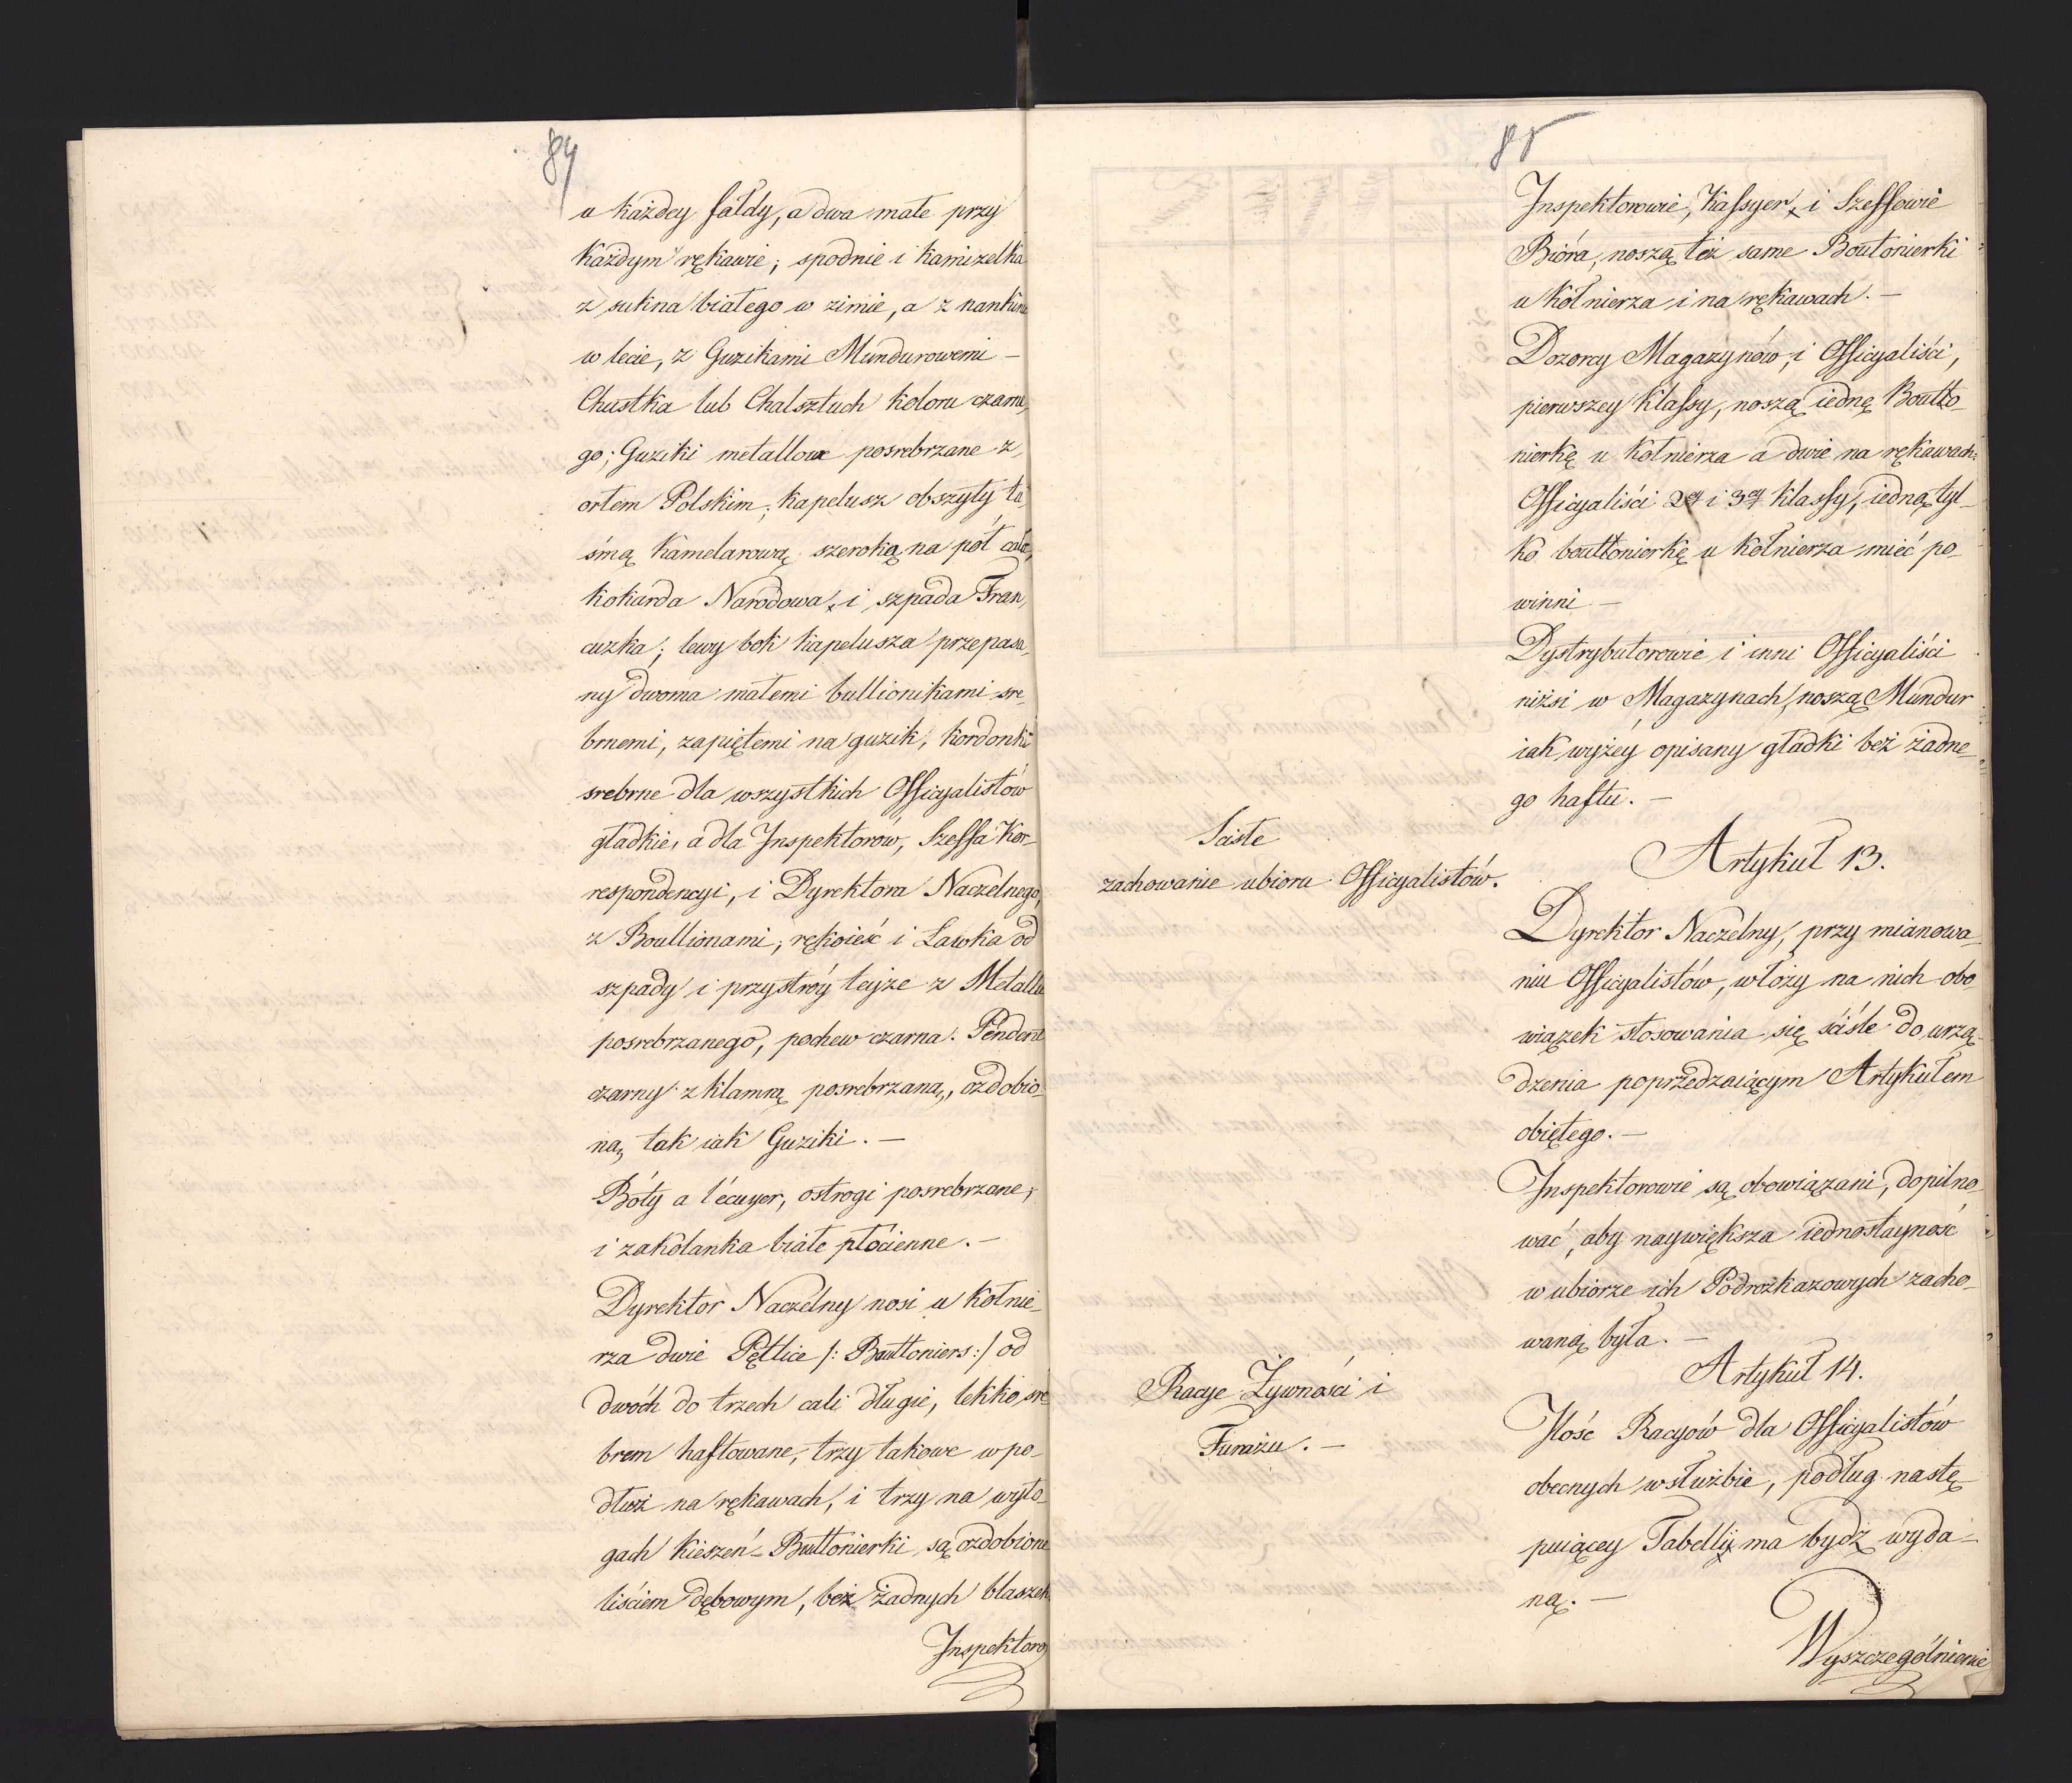 84
u każdey fałdy, a dwa małe przy
każdym rękawie; spodnie i kamizelka
z sukna białego w zimie, a z nankinu
w lecie, z Guzikami Mundurowemi –
Chustka lub Chalsztuch koloru czarne,
go; Guziki metallowe posrebrzane z
orłem Polskim; kapelusz obszyty ta,
śmą Kamelarową szeroką na pół cala,
kokarda Narodowa, i szpada Fran,
cuzka; lewy bok kapelusza przepasa,
ny dwoma małemi bullionikami sre,
brnemi, zapiętemi na guzik, kordonki
srebrne dla wszystkich Officyalistów
gładkie, a dla Inspektorów, Szeffa Kor-
respondencyi, i Dyrektora Naczelnego,
z Boullionami; rękoieść i Ławka od
szpady i przystróy teyże z Metallu
posrebrzanego, pochew czarna. Pendent
czarny z klamrą posrebrzaną, ozdobio-
na, tak iak Guziki. –
Bóty a l'écuyer, ostrogi posrebrzane,
i zakolanka białe płócienne. –
Dyrektor Naczelny nosi u kołnie-
rza dwie Pętlice /: Bouttoniers :/ od
dwóch do trzech cali długie, lekko sre
brem haftowane, trzy takowe w po-
dłuż na rękawach, i trzy na wyło-
gach kieszeń – Buttonierki są ozdobione
liściem dębowym, bez żadnych blaszek.
Inspektoro
85
Inspektorowie, Kassyer, i Szeffowie
Bióra, noszą też same Boutonierki
u kołnierza i na rękawach. –
Dozorcy Magazynów, i Officyaliści,
pierwszey klassy, noszą iednę Boutto-
nierkę u kołnierza a dwie na rękawach:
Officyaliści 2ey i 3ey klassy, iedną tyl-
ko bouttonierkę u kołnierza mieć po-
winni –
Dystrybutorowie i inni Officyaliści
niżsi w Magazynach, noszą Mundur
iak wyżey opisany gładki bez żadne-
go haftu. –
Artykuł 13.
Sciste
zachowanie ubioru Officyalistów.
Dyrektor Naczelny, przy mianowa-
niu Officyalistów, włoży na nich obo-
wiązek stosowania się ściśle do urzą-
dzenia poprzedzaiącym Artykułem
obiętego. –
Inspektorowie są obowiązani, dopilno-
wać, aby naywiększa iednostayność
w ubiorze ich Podrozkazowych zacho-
waną była. –
Artykuł 14.
Racye Żywności i
Furażu. –
Ilość Racyów dla Officyalistów
obecnych w służbie, podług nastę-
puiącey Tabelli ma bydź wyda-
ną. –
Wyszczególnienie